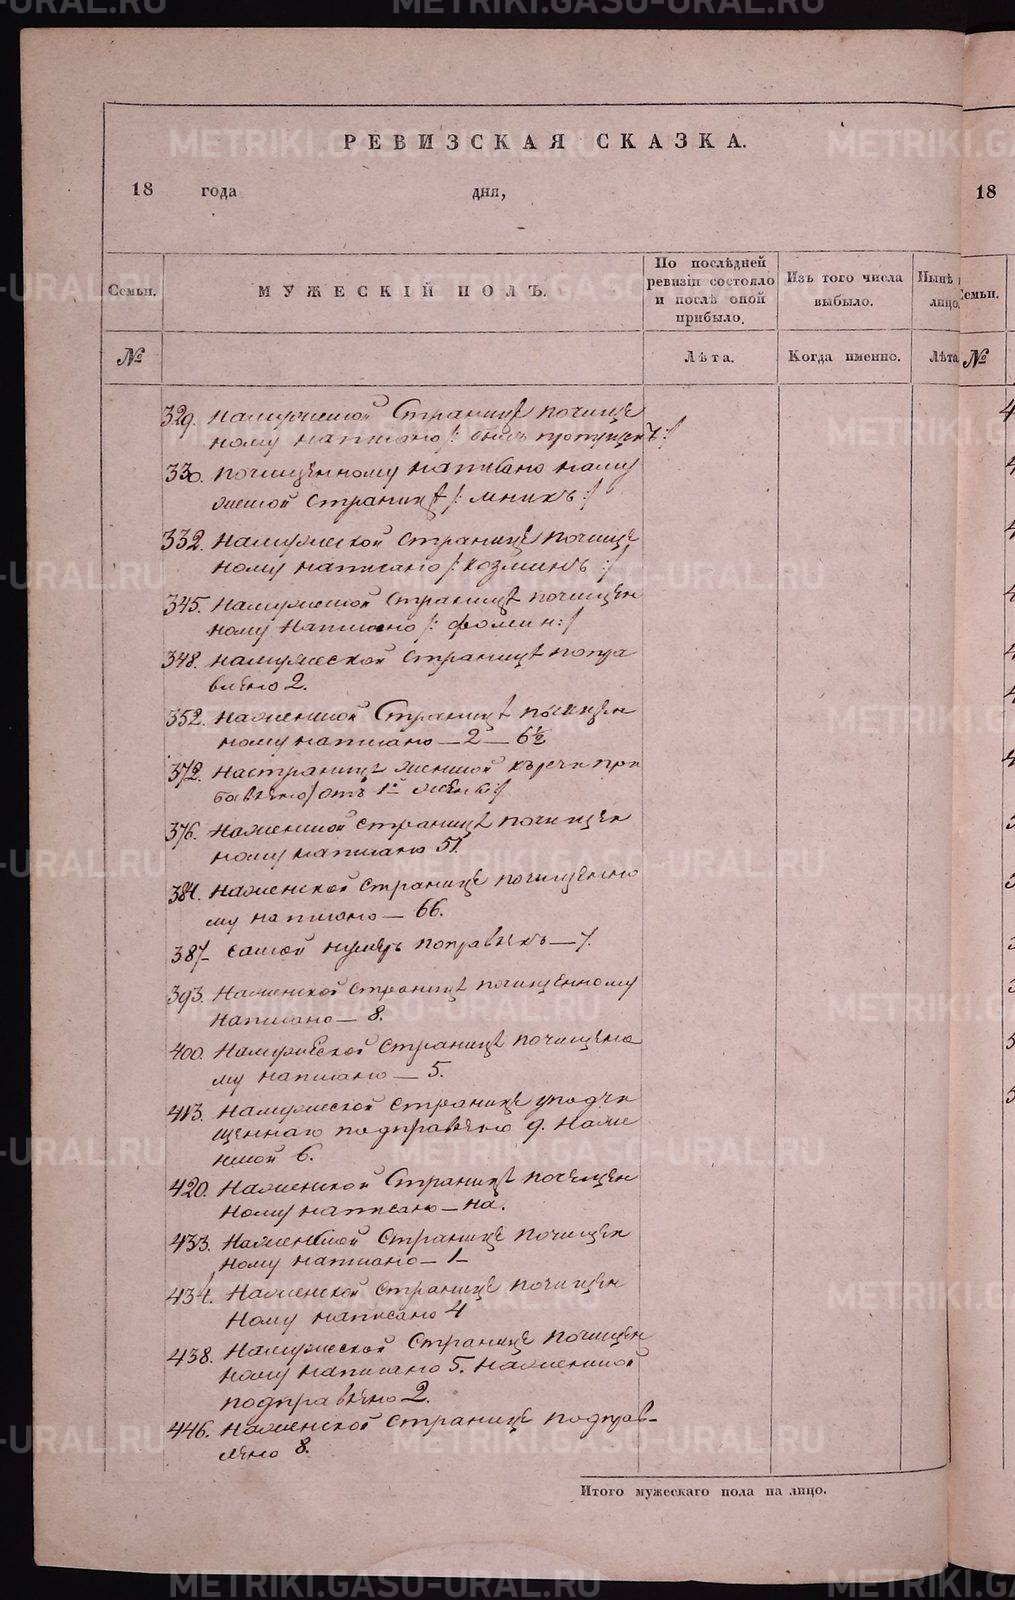 РЕВИЗСКАЯ СКАЗКА.
18 года дня,
18
Семьи.
МУЖЕСКІЙ ПОЛЪ.
По послѣдней
ревизіи состояло
и послѣ оной
прибыло.
Изъ того числа
выбыло.
Нынѣ
лицо
Семьи.
№
Лѣта.
Когда именно.
Лѣта
№
329. Намужеской Странице почище
ному написано /: былъ пропущенъ :/
330. почищенному написано наму
жеской страницѣ /:
332. Намужеской странице почище
ному написано /: Козминъ :/
345. Намужеской страницѣ почищен
ному Написано /: фомин :/
348. намужеской страницѣ попра
влено 2.
352. Наженской Страницѣ почищен
ному написано — 2 — 6½
372. Настраницѣ женской къречи при
бавлено / отъ 1й жены :/
376. Наженской страницѣ почищен
ному написано 51.
384. Наженской странице почищенно
му написано — 66.
387. самой нумеръ поправленъ — 7.
393. Наженской страницѣ почищенному
написано — 8.
400. Намужеской страницѣ почищено
му написано — 5.
413. Намужеской странице уподчи
щеннаго подправлено 9. Наже
нской 6.
420. Наженской Страницѣ почищен
ному написано — на.
433. Наженской Странице почищен
ному написано — 1 —
434. Наженской странице почищен
ному написано 4
438. Намужеской Странице почищен
ному написано 5. Наженской
подправлено 2.
446. Наженской странице подправ-
лено 8.
Итого мужескаго пола на лицо.
METRIKI.GASO-URAL.RU